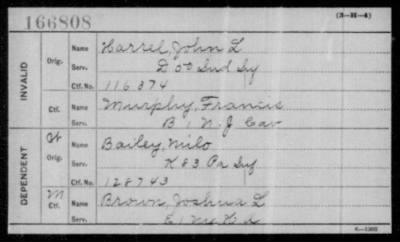 166808
(3-H-4)
INVALID
Orig.
Name Harrel, John L
Serv. D 50 Ind Inf
Ctf. No. 116374
Ctf.
Name Murphy, Francis
Serv. B 1 N.J Cav
DEPENDENT
W
Orig.
Name Bailey, Milo
Serv. K 83 Pa Inf
Ctf. No. 128743
M
Ctf.
Name Brown, Joshua L
Serv. E 1